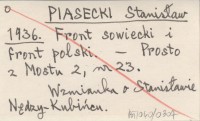 o PIASECKI Stanisław
1936. Front sowiecki i
front polski. – Prosto
z Mostu 2, nr 23.
Wzmianka o Stanisławie
Nędzy-Kubińcu.